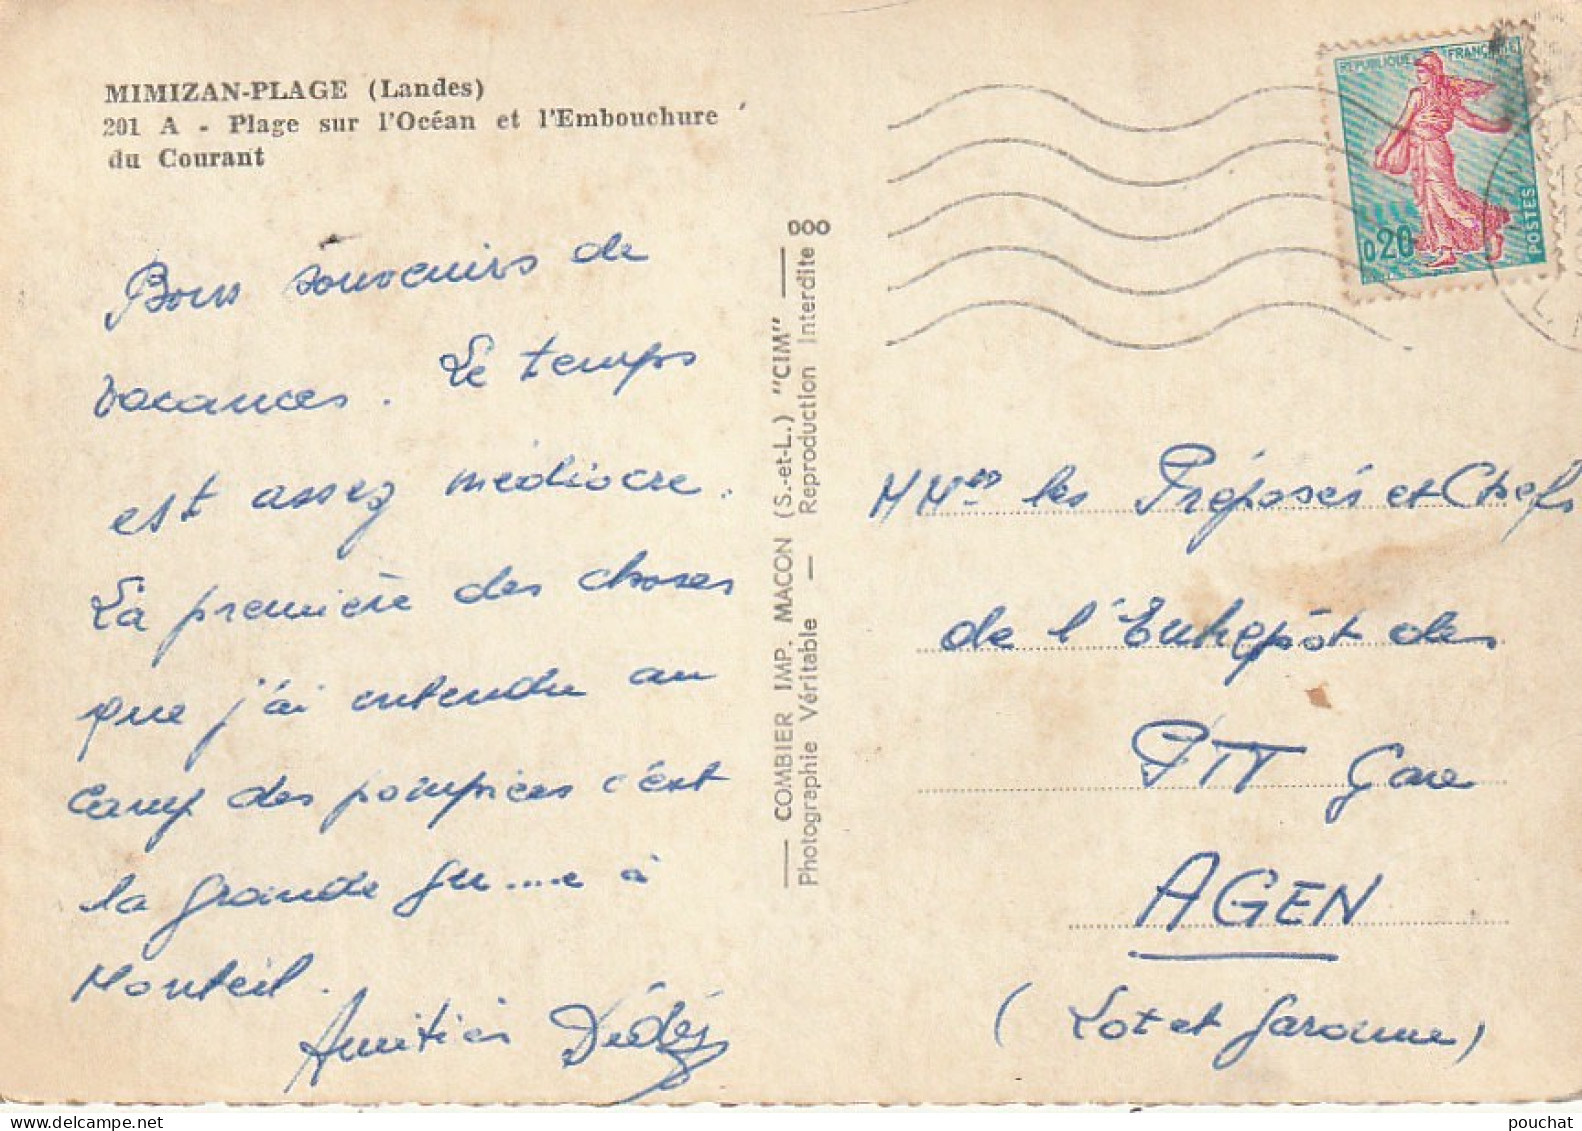 MIMIZAN-PLAGE (Landes)
201 A - Plage sur l'Océan et l'Embouchure
du Courant
Bons souvenirs de
vacances. Le temps
est assez médiocre.
La première des choses
que j'ai entendu au
Camp des pompiers c'est
la grande gu....e à
Monteil.
Amitiés Dédé
000
COMBIER IMP. MACON (S.-et-L.) "CIM"
Photographie Véritable — Reproduction Interdite
REPUBLIQUE FRANÇAISE
0,20
POSTES
18
MMrs les Préposés et Chefs
de l'Entrepôt des
PTT Gare
AGEN
(Lot et Garonne)
pouchat